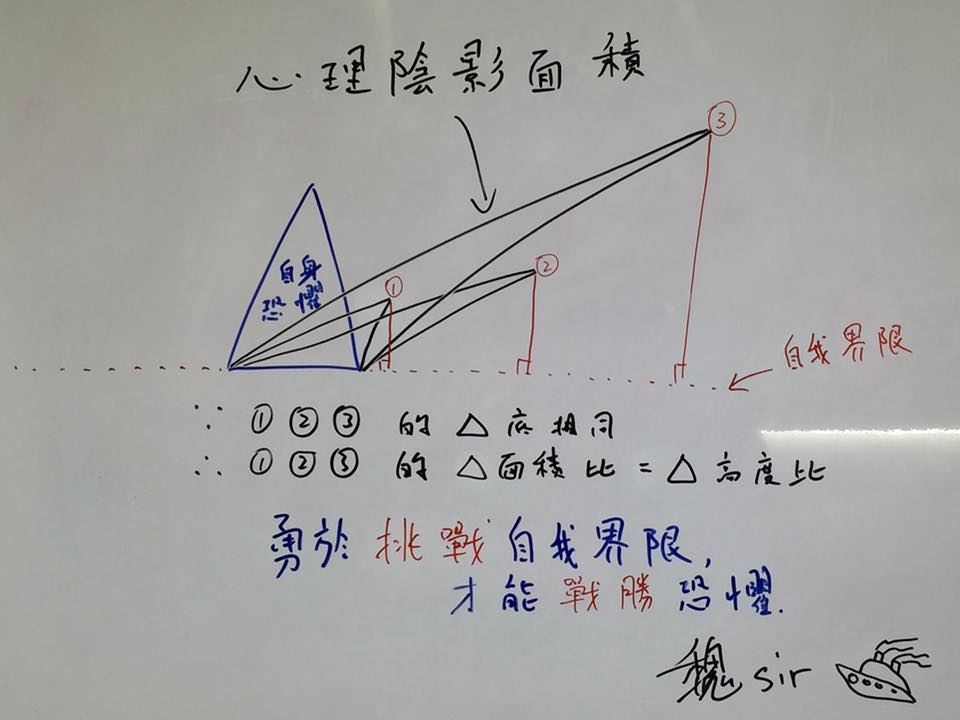 心理陰影面積
③
②
①
自身
恐懼
自我界限
∵ ① ② ③ 的 △ 底相同
∴ ① ② ③ 的 △ 面積比 = △ 高度比
勇於挑戰自我界限,
才能戰勝恐懼.
魏 sir